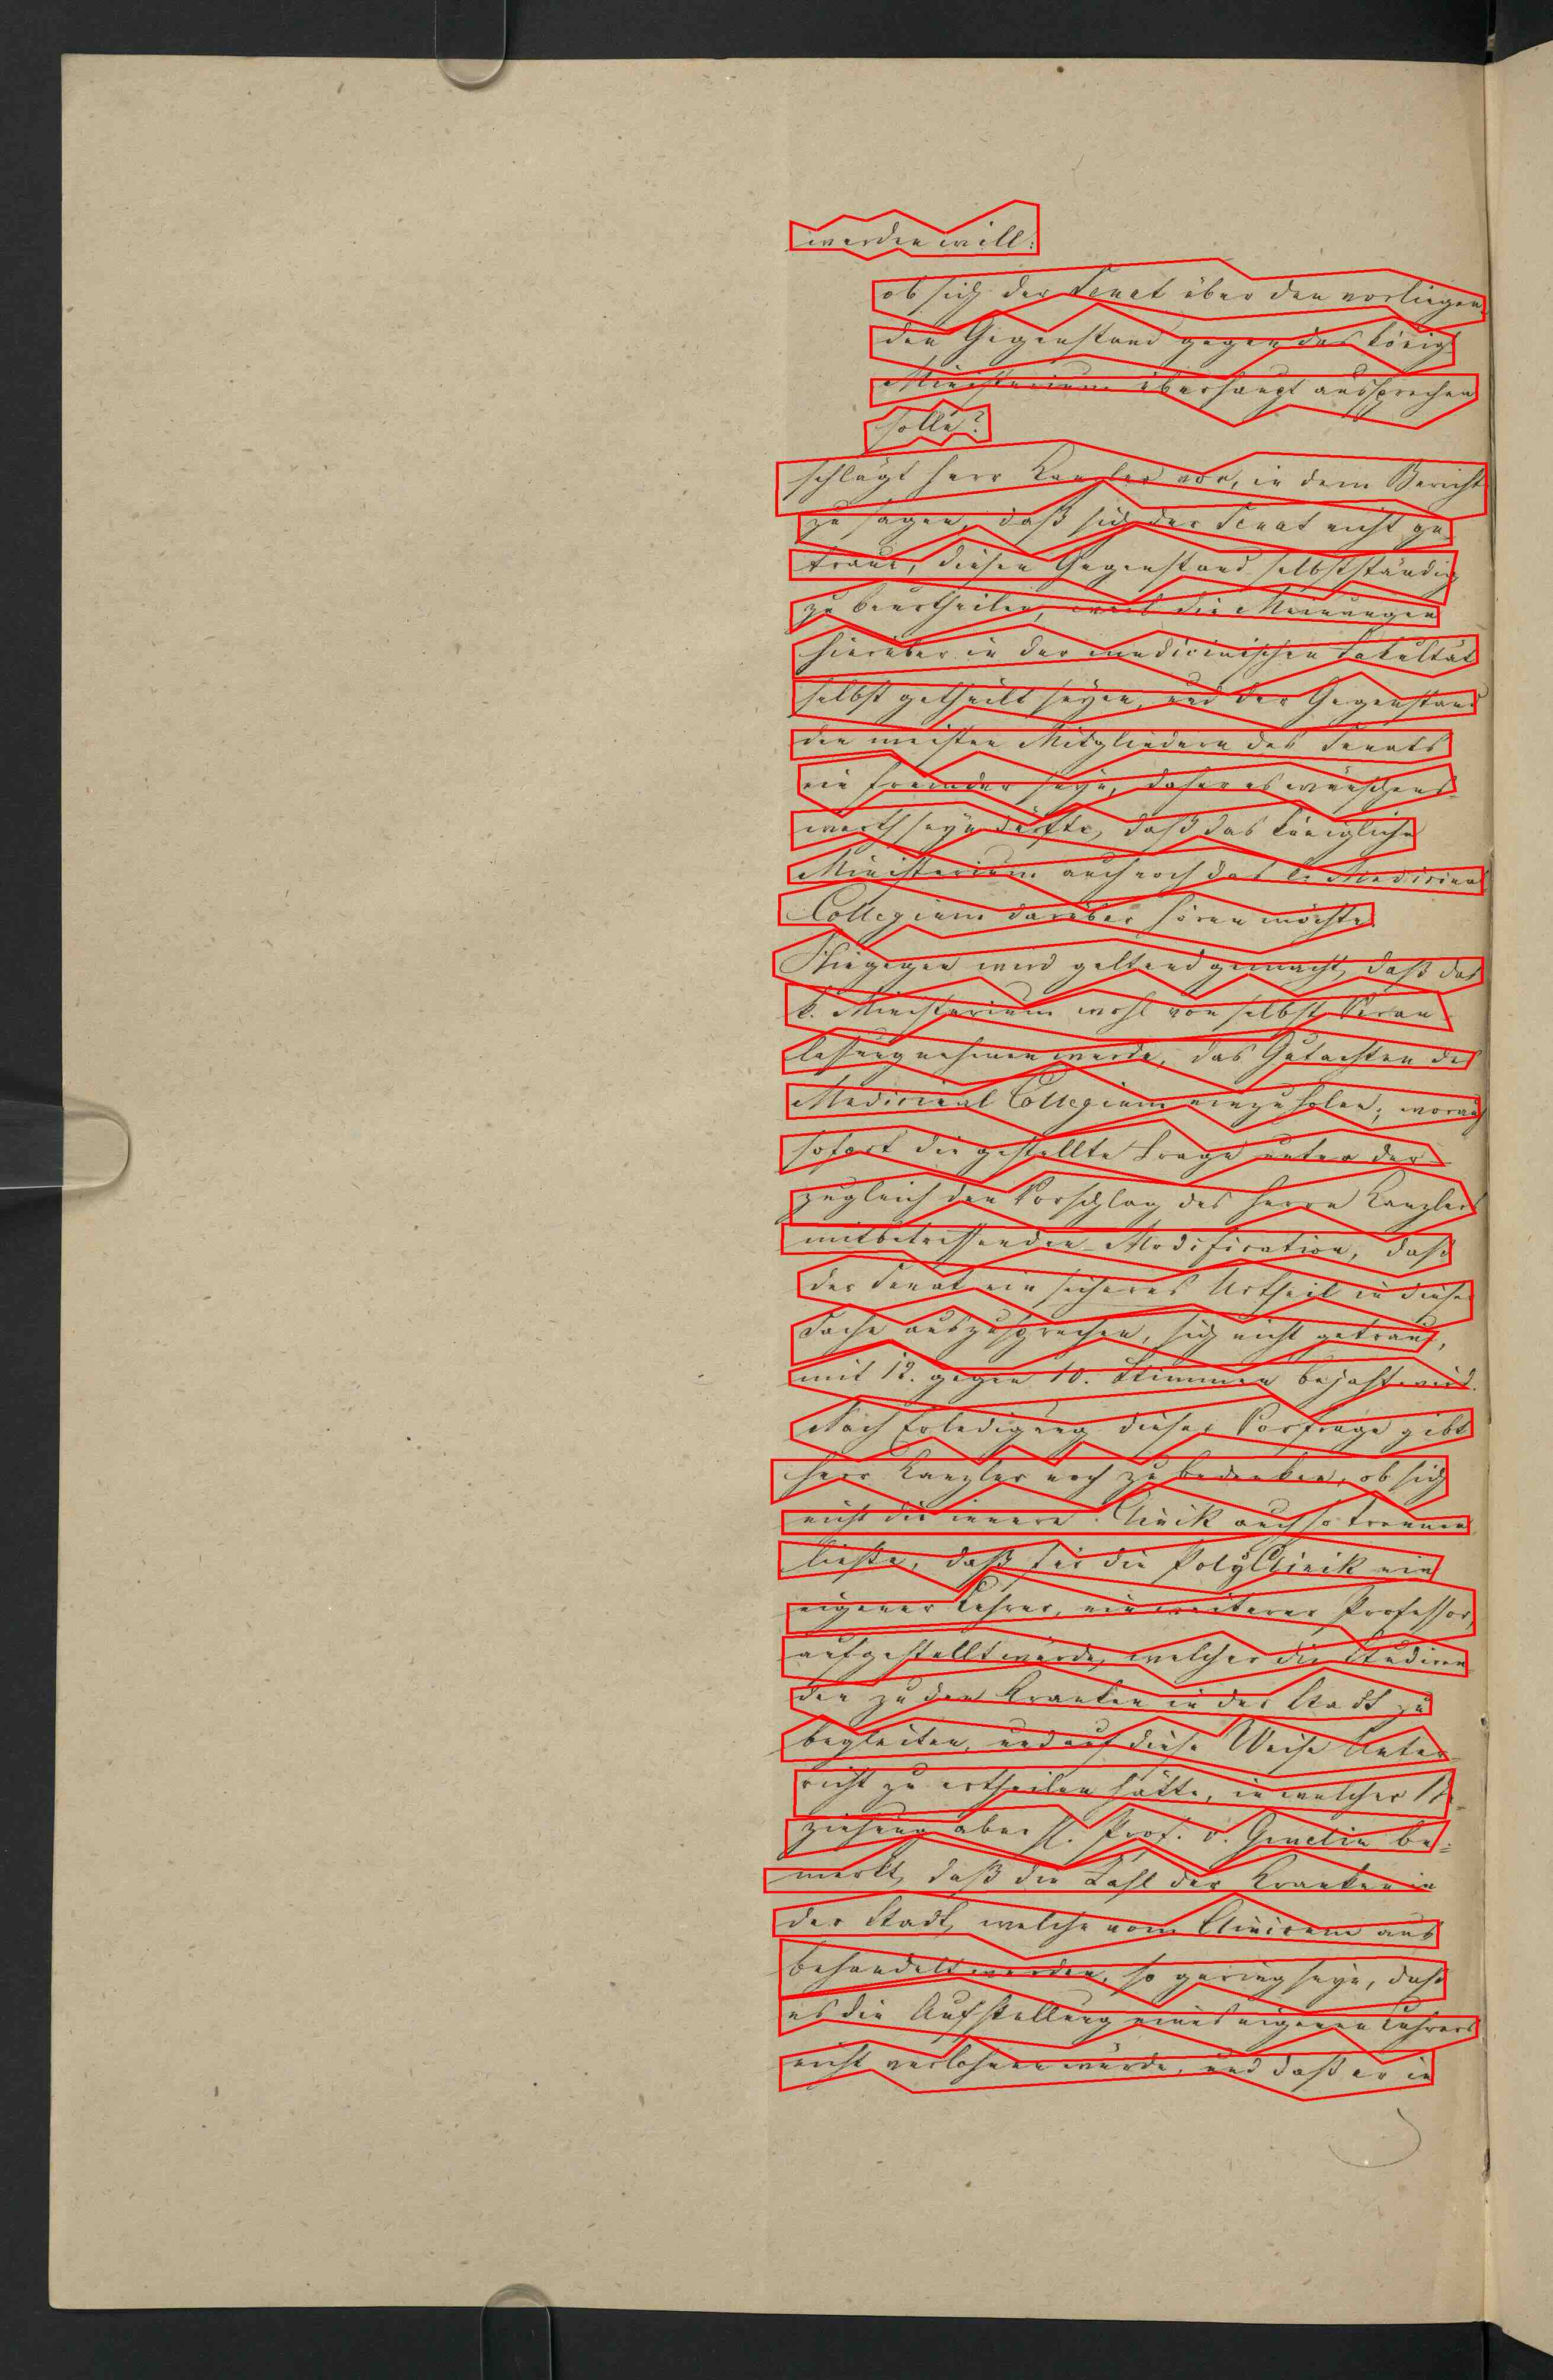 werden will:
ob sich der Senat über den vorliegen-
den Gegenstand gegen das königl.
Ministerium überhaupt aussprechen
solle?
schlägt Herr Kanzler vor, in dem Bericht
zu sagen, daß sich der Senat nicht ge-
traue, diesen Gegenstand selbstständig
zu beurtheilen, weil die Meinungen
hierüber in der medicinischen Fakultät
selbst getheilt seyen, und der Gegenstand
den meisten Mitgliedern des Senats
ein fremder seye, daher es wünschens-
werth seyn dürfte, daß das königliche
Ministerium auch noch das k. Medicinal
Collegium darüber hören möchte.
Hiegegen wird geltend gemacht, daß das
k. Ministerium wohl von selbst Veran-
lassung nehmen werde, das Gutachten des
Medicinal Collegium einzuholen; worauf
sofort die gestellte Frage unter der
zugleich den Vorschlag des Herrn Kanzlers
mitbetreffenden Modification, daß
der Senat ein sicheres Urtheil in dieser
Sache auszusprechen, sich nicht getraue,
mit 12. gegen 10. Stimmen bejaht wird.
Nach Erledigung dieser Vorfrage gibt
Herr Kanzler noch zu bedenken, ob sich
nicht die innere Clinik auch so trennen
ließe, daß für die PolyClinik ein
eigener Lehrer, ein weiterer Professor,
aufgestellt würde, welcher die Studiren-
den zu den Kranken in der Stadt zu
begleiten, und auf diese Weise Unter-
richt zu ertheilen hätte, in welcher Be-
ziehung aber H. Prof. v. Gmelin be-
merkt, daß die Zahl der Kranken in
der Stadt, welche vom Clinicum aus
behandelt werden, so gering seye, daß
es die Aufstellung eines eigenen Lehrers
nicht verlohnen würde, und daß er in